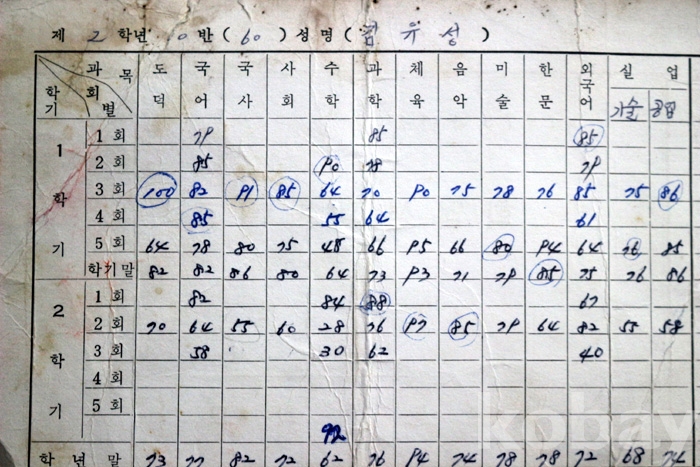 제 2 학년 10 반 ( 60 ) 성명 ( 김 유 성 )
과 목 도 국 국 사 수 과 체 음 미 한 외 실 업
학 회 국
기 별 덕 어 사 회 학 학 육 악 술 문 어 기술 공업
1 1 회 79 85 85
2 회 85 90 78 79
3 회 100 82 91 85 64 70 90 75 78 76 85 75 86
학 4 회 85 55 64 61
기 5 회 64 78 80 75 48 66 95 66 80 94 64 76 85
학기말 82 82 86 80 64 73 93 71 79 85 75 76 86
2 1 회 82 84 88 67
2 회 70 64 55 60 28 76 97 85 79 64 82 55 58
학 3 회 58 30 62 40
4 회
기 5 회
92
학 년 말 73 77 82 72 62 76 94 74 78 78 72 68 74
kobay